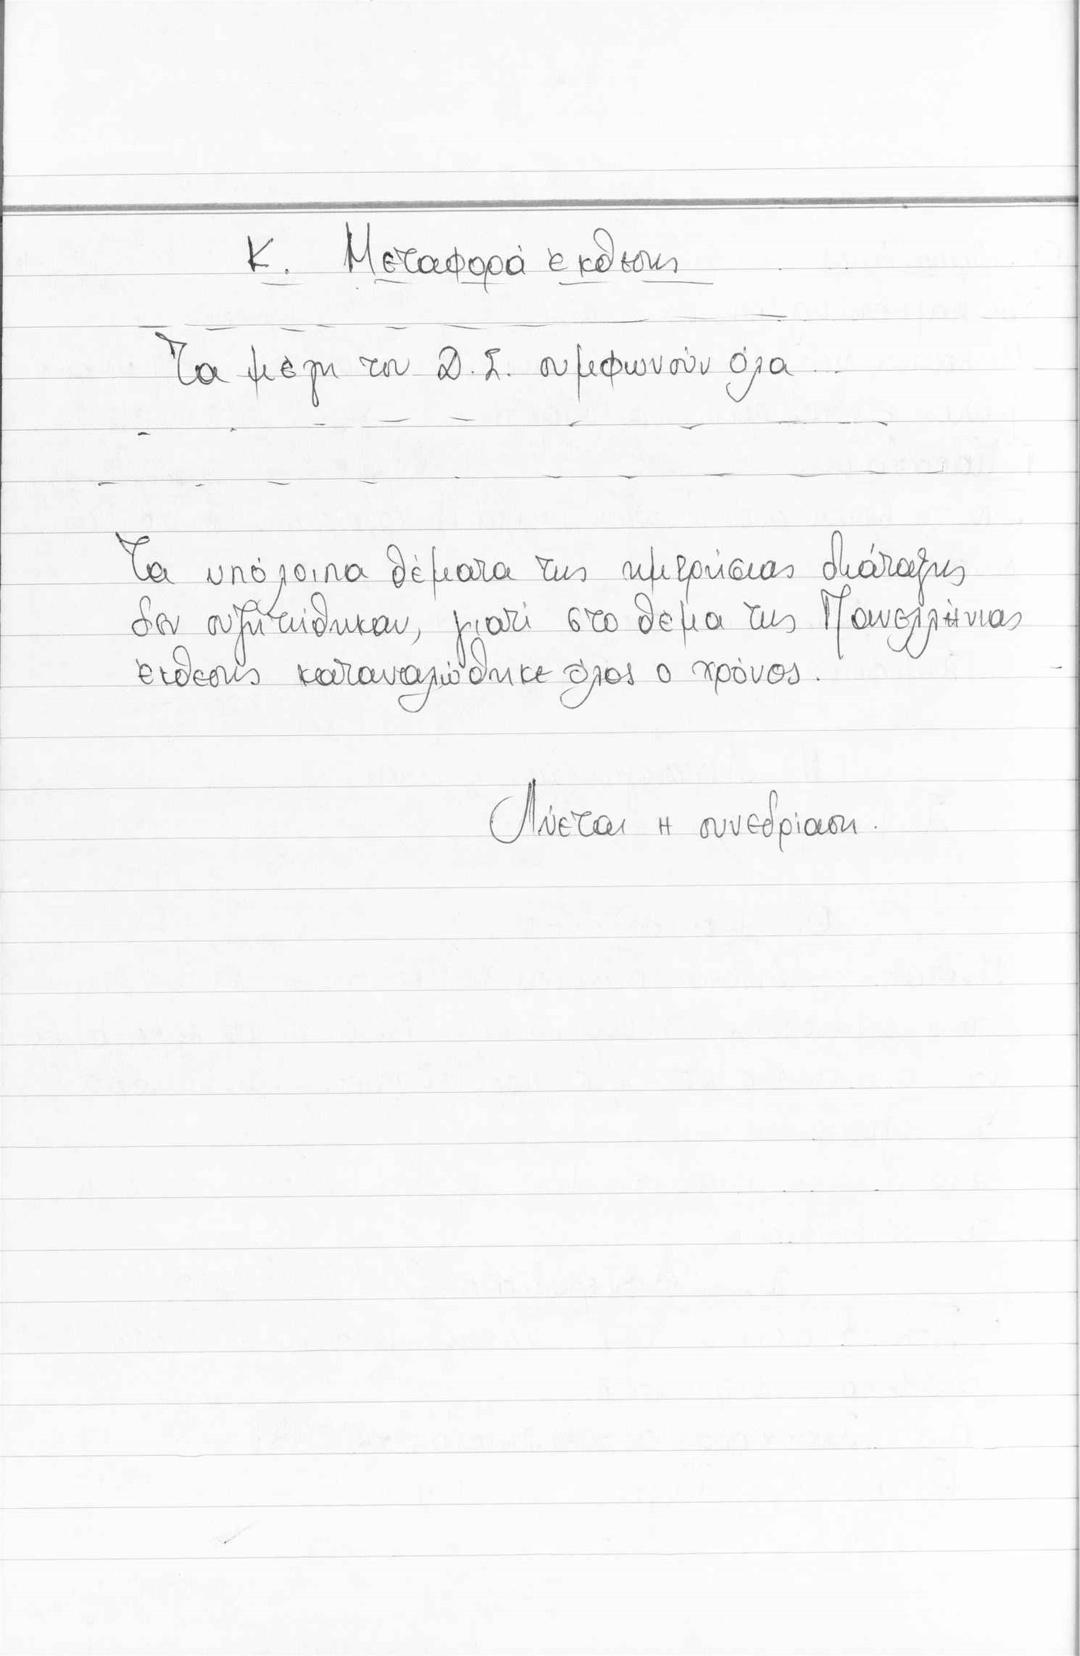 Κ. Μεταφορά έκθεσης
Τα μέλη του Δ.Σ. συμφωνούν όλα
Τα υπόλοιπα θέματα της ημερήσιας διάταξης
δεν συζητήθηκαν, γιατί στο θέμα της Πανελλήνιας
έκθεσης καταναλώθηκε όλος ο χρόνος.
Λύεται η συνεδρίαση.